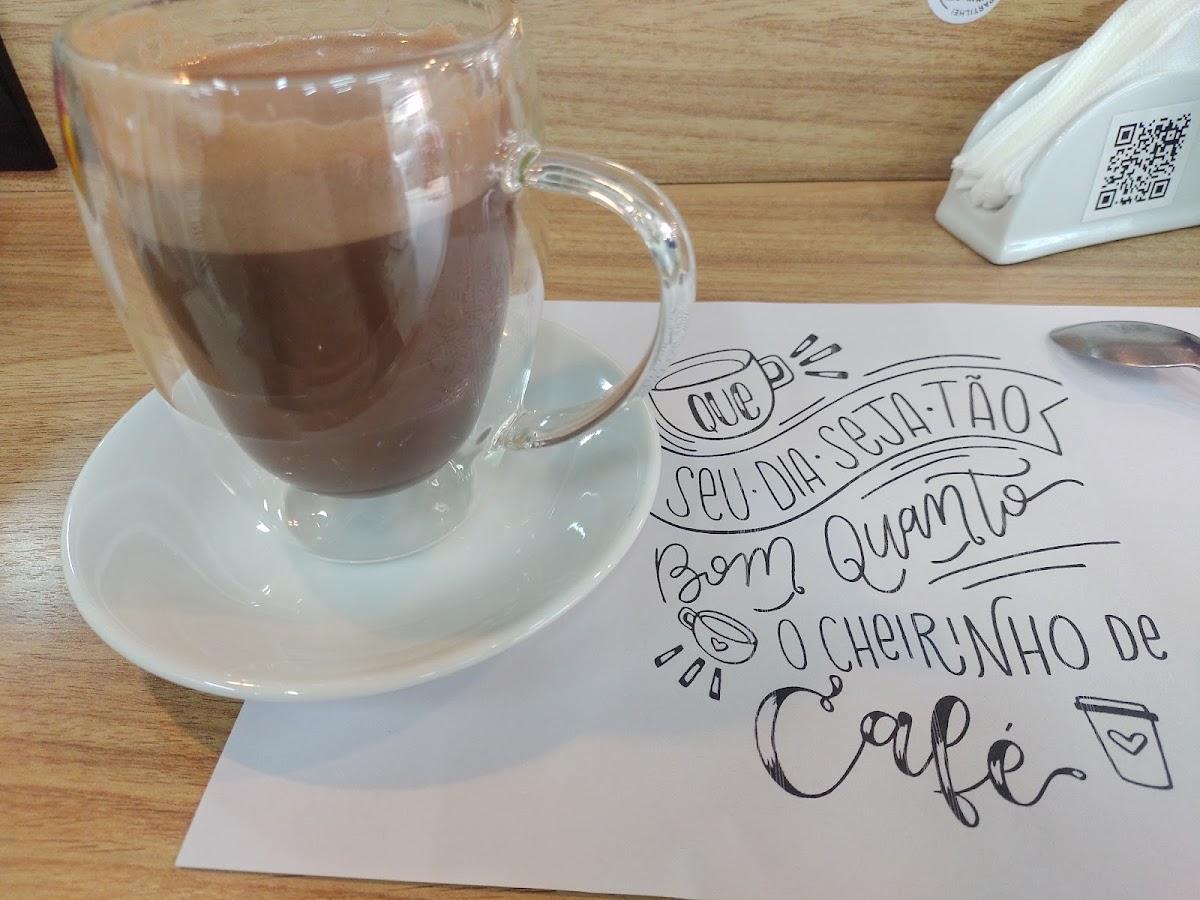 PARTILHE!
QUE
SEU·DIA·SEJA·TÃO
BOM QUANTO
O CHEIRINHO DE
Café